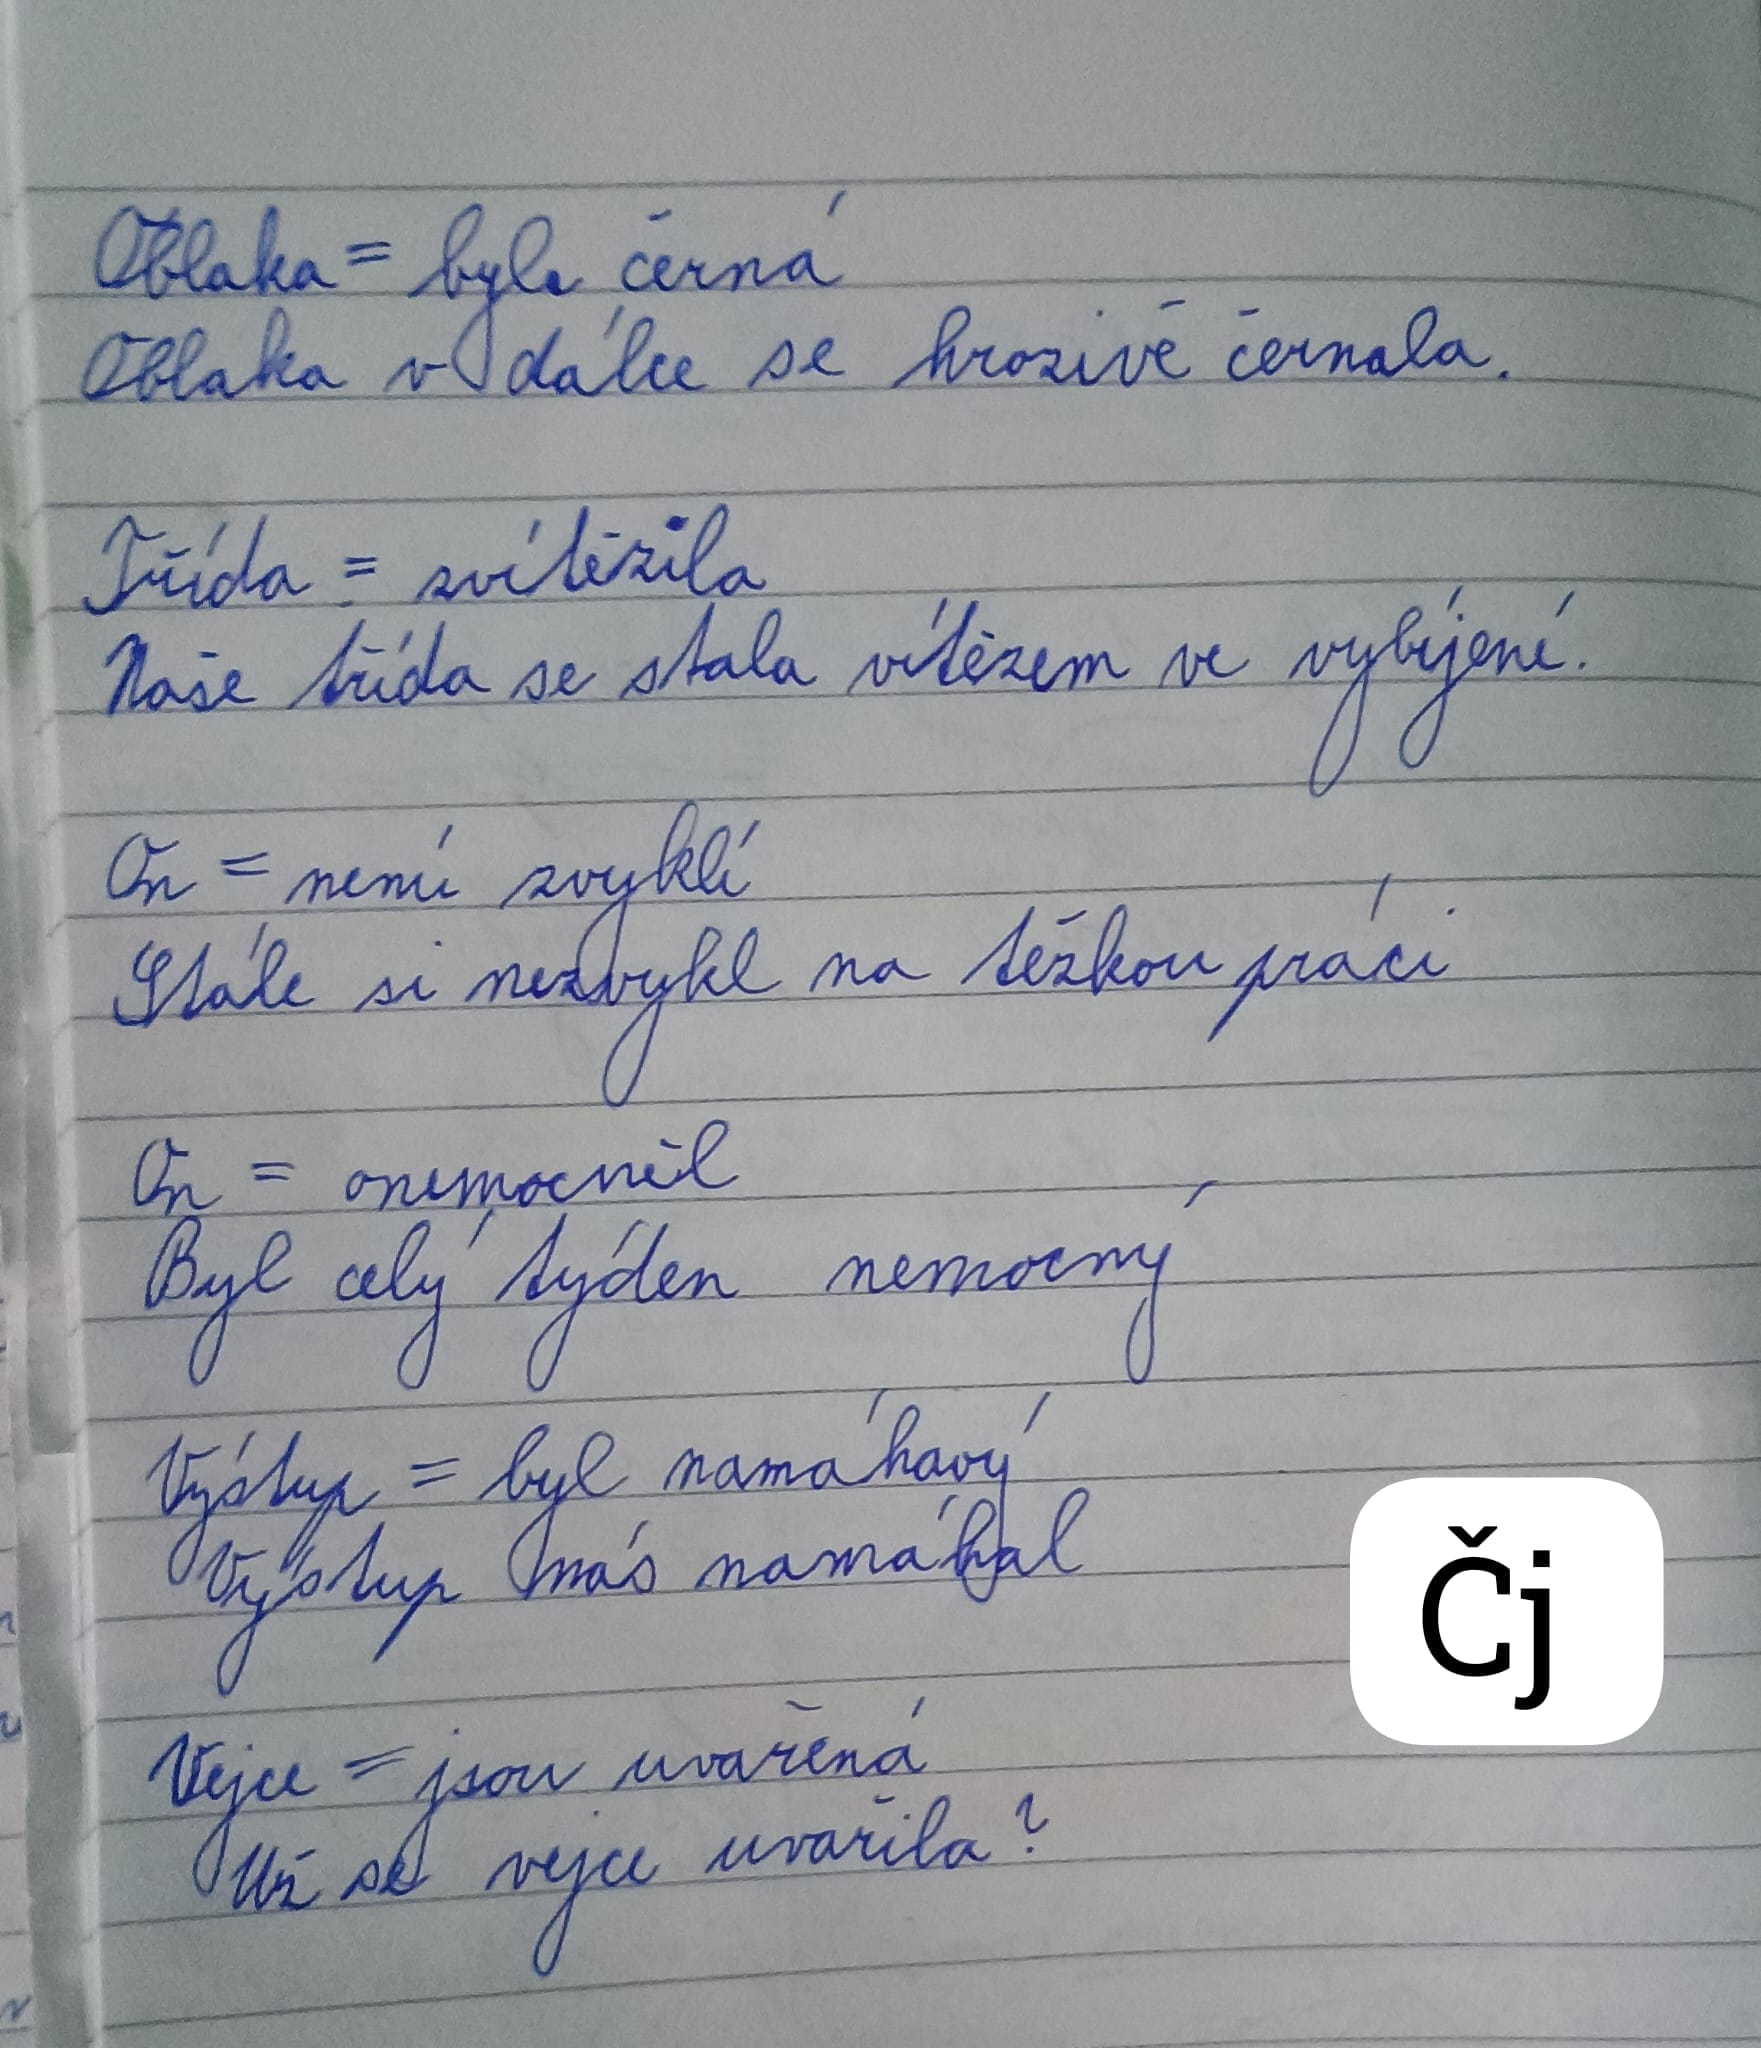 Oblaka = byla černá
Oblaka v dálce se hrozivě černala.
Třída = zvítězila
Naše třída se stala vítězem ve vybíjené.
On = není zvyklí
Stále si nezvykl na těžkou práci
On = onemocněl
Byl celý týden nemocný
Výstup = byl namáhavý
Výstup nás namáhal
Vejce = jsou uvařená
Už se vejce uvařila?
Čj